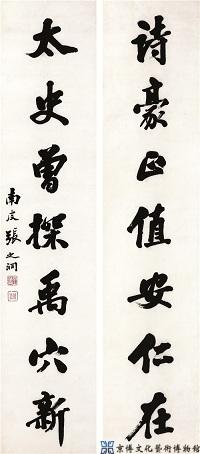 詩豪正值安仁在
太史曾探禹穴新
南皮張之洞
京博文化藝術博物館